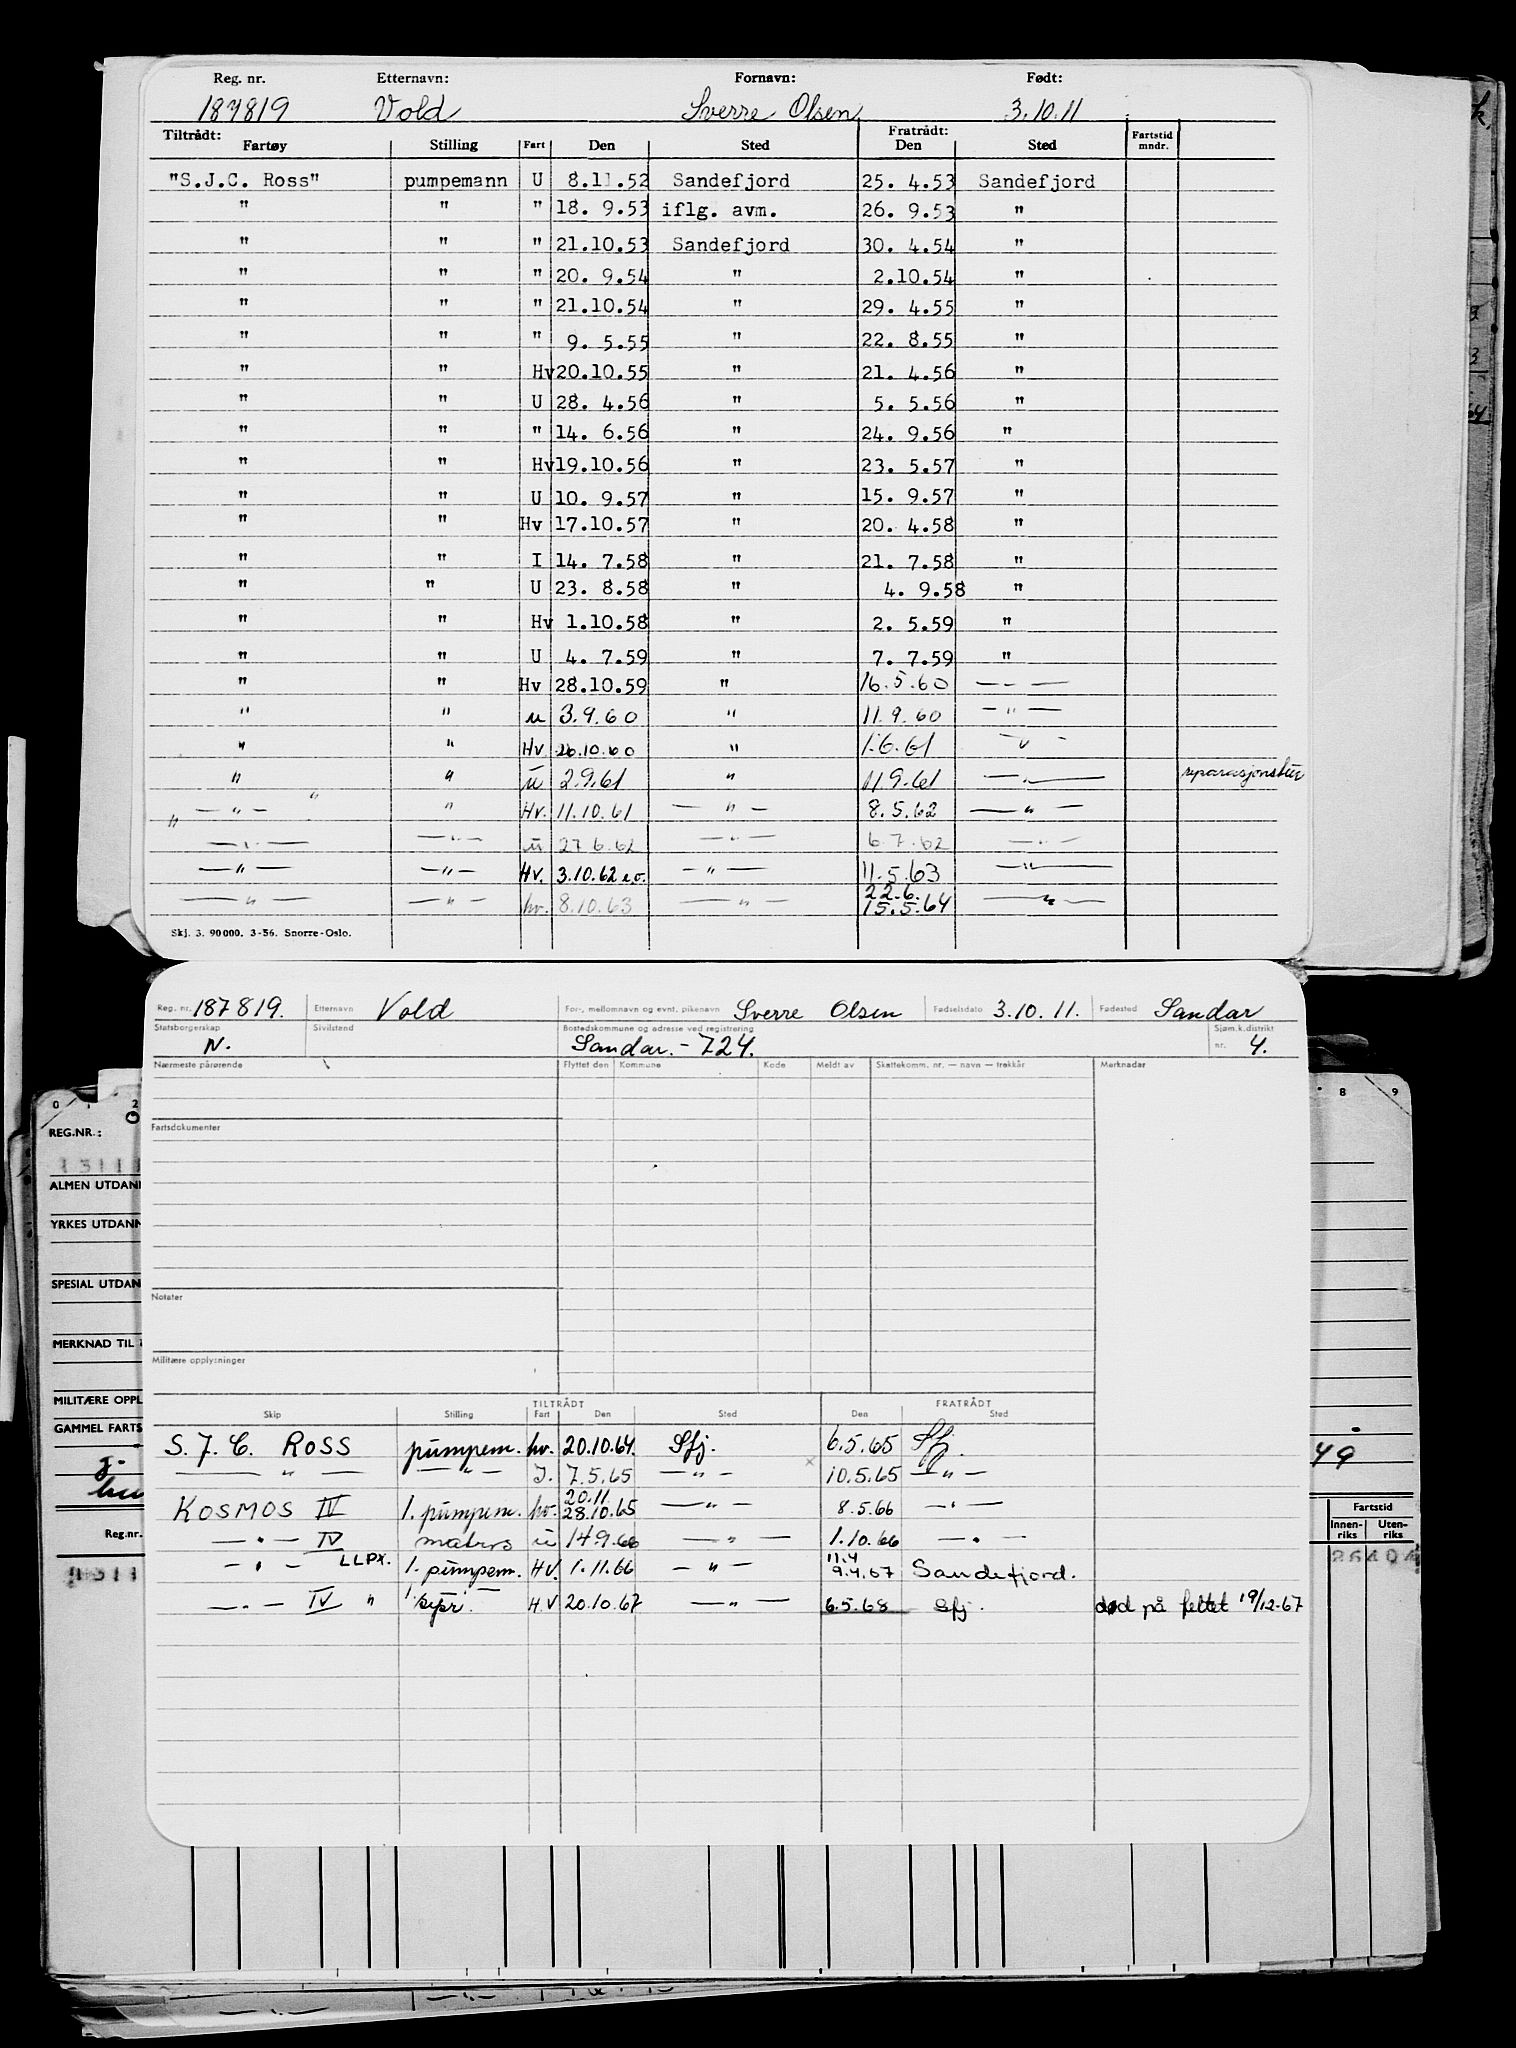 Reg. nr. Etternavn: Fornavn: Født:
187819 Vold Sverre Olsen 3.10.11
Tiltrådt: Fratrådt:
Fartøy Stilling Fart Den Sted Den Sted Fartstid mndr.
"S.J.C. Ross" pumpemann U 8.11.52 Sandefjord 25. 4.53 Sandefjord
" " " 18. 9.53 iflg. avm. 26. 9.53 "
" " " 21.10.53 Sandefjord 30. 4.54 "
" " " 20. 9.54 " 2.10.54 "
" " " 21.10.54 " 29. 4.55 "
" " " 9. 5.55 " 22. 8.55 "
" " Hv 20.10.55 " 21. 4.56 "
" " U 28. 4.56 " 5. 5.56 "
" " " 14. 6.56 " 24. 9.56 "
" " Hv 19.10.56 " 23. 5.57 "
" " U 10. 9.57 " 15. 9.57 "
" " Hv 17.10.57 " 20. 4.58 "
" " I 14. 7.58 " 21. 7.58 "
" " U 23. 8.58 " 4. 9.58 "
" " Hv 1.10.58 " 2. 5.59 "
" " U 4. 7.59 " 7. 7.59 "
" " Hv 28.10.59 " 16.5.60 — " —
" " u 3.9.60 " 11.9.60 — " —
" " Hv. 26.10.60 " 1.6.61 — " —
" " u 2.9.61 " 11.9.61 — " —
— " — " Hv. 11.10.61 — " — 8.5.62 — " —
— " — — " — u 27.6.62 — " — 6.7.62 — " —
— " — — " — Hv. 3.10.62 — " — 11.5.63 — " —
22.6.
— " — — " — hv. 8.10.63 — " — 15.5.64 — " —
Skj. 3. 90000. 3-56. Snorre-Oslo.
Reg. nr. 187819. Etternavn Vold For-, mellomnavn og evnt. pikenavn Sverre Olsen Fødselsdato 3.10.11. Fødested Sandar
Statsborgerskap Sivilstand Bostedskommune og adresse ved registrering Sjøm.k.distrikt
N. Sandar. - 724. nr. 4.
Nærmeste pårørende Flyttet den Kommune Kode Meldt av Skattekomm. nr. — navn — trekkår Merknader
Fartsdokumenter
Notater
Militære opplysninger
TILTRÅDT FRATRÅDT
Skip Stilling Fart Den Sted Den Sted
S. J. C. ROSS pumpem. hv. 20.10.64. Sfj. 6.5.65 Sfj.
— " — — " — I. 7.5.65 — " — 10.5.65 — " —
20.11
KOSMOS IV 1. pumpem. hv. 28.10.65 — " — 8.5.66 — " —
— " — IV matros u 14.9.66 — " — 1.10.66 — " —
11.4
— " — LLPX. 1. pumpem. HV. 1.11.66 — " — 9.4.67 Sandefjord.
— " — IV " HV 20.10.67 — " — 6.5.68 Sfj. død på feltet 19/12-67
0 1 2 8 9
REG.NR.:
ALMEN UTDAN
YRKES UTDANN
SPESIAL UTDAN
MERKNAD TIL
MILITÆRE OPPL
GAMMEL FARTS
49
Reg.nr. Fartstid
Innen-riks Uten-riks